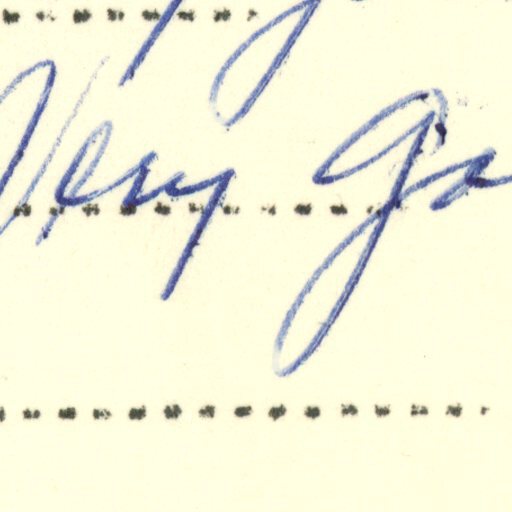 Very go